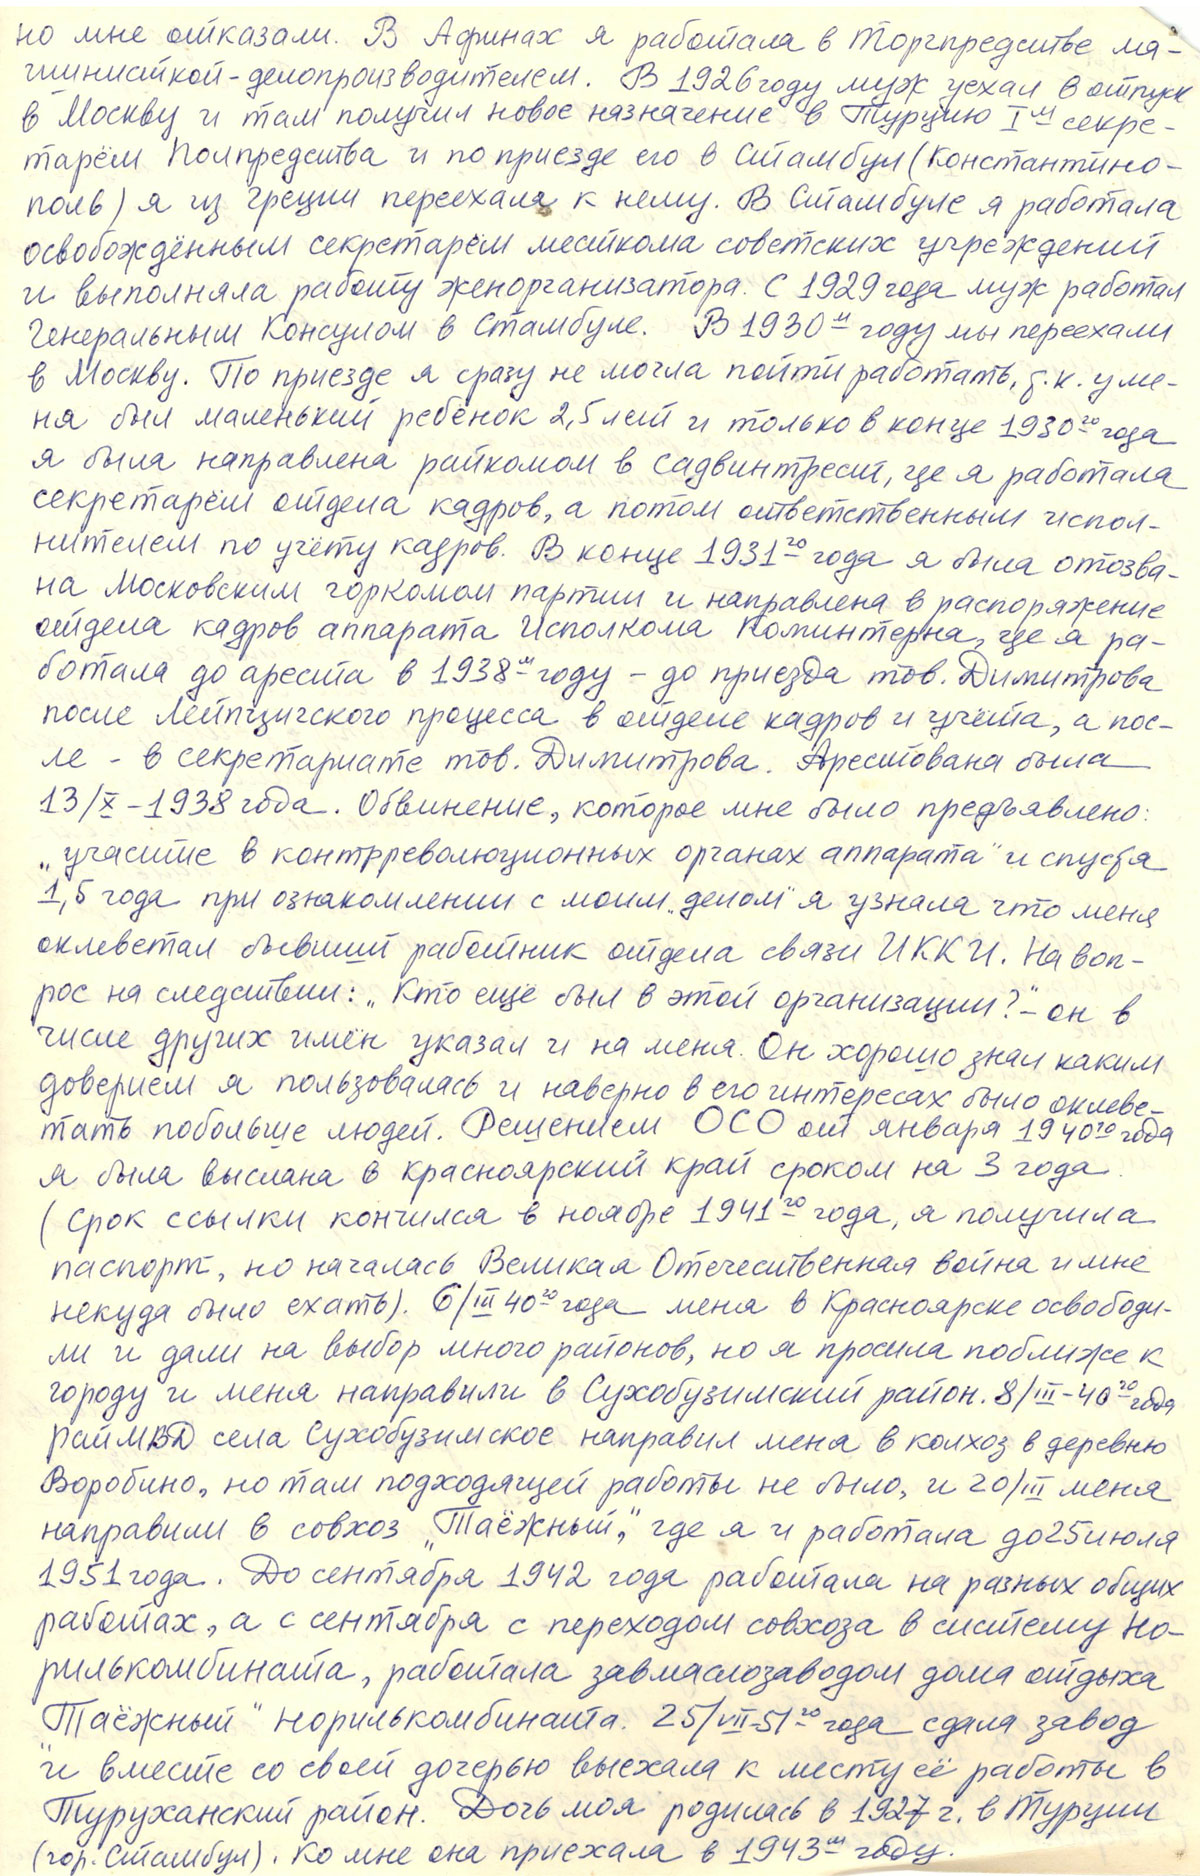 но мне отказали. В Афинах я работала в Торгпредстве ма-
шинисткой-делопроизводителем. В 1926 году муж уехал в отпуск
в Москву и там получил новое назначение в Турцию Iм секре-
тарём Полпредства и по приезде его в Стамбул (Константино-
поль) я из Греции переехала к нему. В Стамбуле я работала
освобождённым секретарём месткома советских учреждений
и выполняла работу женорганизатора. С 1929 года муж работал
Генеральным Консулом в Стамбуле. В 1930м году мы переехали
в Москву. По приезде я сразу не могла пойти работать, т.к. у ме-
ня был маленький ребёнок 2,5 лет и только в конце 1930го года
я была направлена райкомом в Садвинтрест, где я работала
секретарём отдела кадров, а потом ответственным испол-
нителем по учёту кадров. В конце 1931го года я была отозва-
на Московским горкомом партии и направлена в распоряжение
отдела кадров аппарата Исполкома Коминтерна, где я ра-
ботала до ареста в 1938м году – до приезда тов. Димитрова
после Лейпцигского процесса в отделе кадров и учёта, а пос-
ле - в секретариате тов. Димитрова. Арестована была
13/X – 1938 года. Обвинение, которое мне было предъявлено:
„участие в контрреволюционных органах аппарата" и спустя
1,5 года при ознакомлении с моим „делом" я узнала что меня
оклеветал бывший работник отдела связи ИККИ. На воп-
рос на следствии: „Кто ещё был в этой организации?" – он в
числе других имён указал и на меня. Он хорошо знал каким
доверием я пользовалась и наверно в его интересах было оклеве-
тать побольше людей. Решением ОСО от января 1940го года
я была выслана в Красноярский край сроком на 3 года.
(Срок ссылки кончился в ноябре 1941го года, я получила
паспорт, но началась Великая Отечественная война и мне
некуда было ехать). 6/III 40го года меня в Красноярске освободи-
ли и дали на выбор много районов, но я просила поближе к
городу и меня направили в Сухобузимский район. 8/III – 40го года
РайМВД села Сухобузимское направил меня в колхоз в деревню
Воробино, но там подходящей работы не было, и 20/III меня
направили в совхоз „Таёжный", где я и работала до 25 июля
1951 года. До сентября 1942 года работала на разных общих
работах, а с сентября с переходом совхоза в систему Но-
рилькомбината, работала завмаслозаводом дома отдыха
„Таёжный" Норилькомбината. 25/VII-51го года сдала завод
и вместе со своей дочерью выехала к месту её работы в
Туруханский район. Дочь моя родилась в 1927 г. в Турции
(гор. Стамбул). Ко мне она приехала в 1943м году.